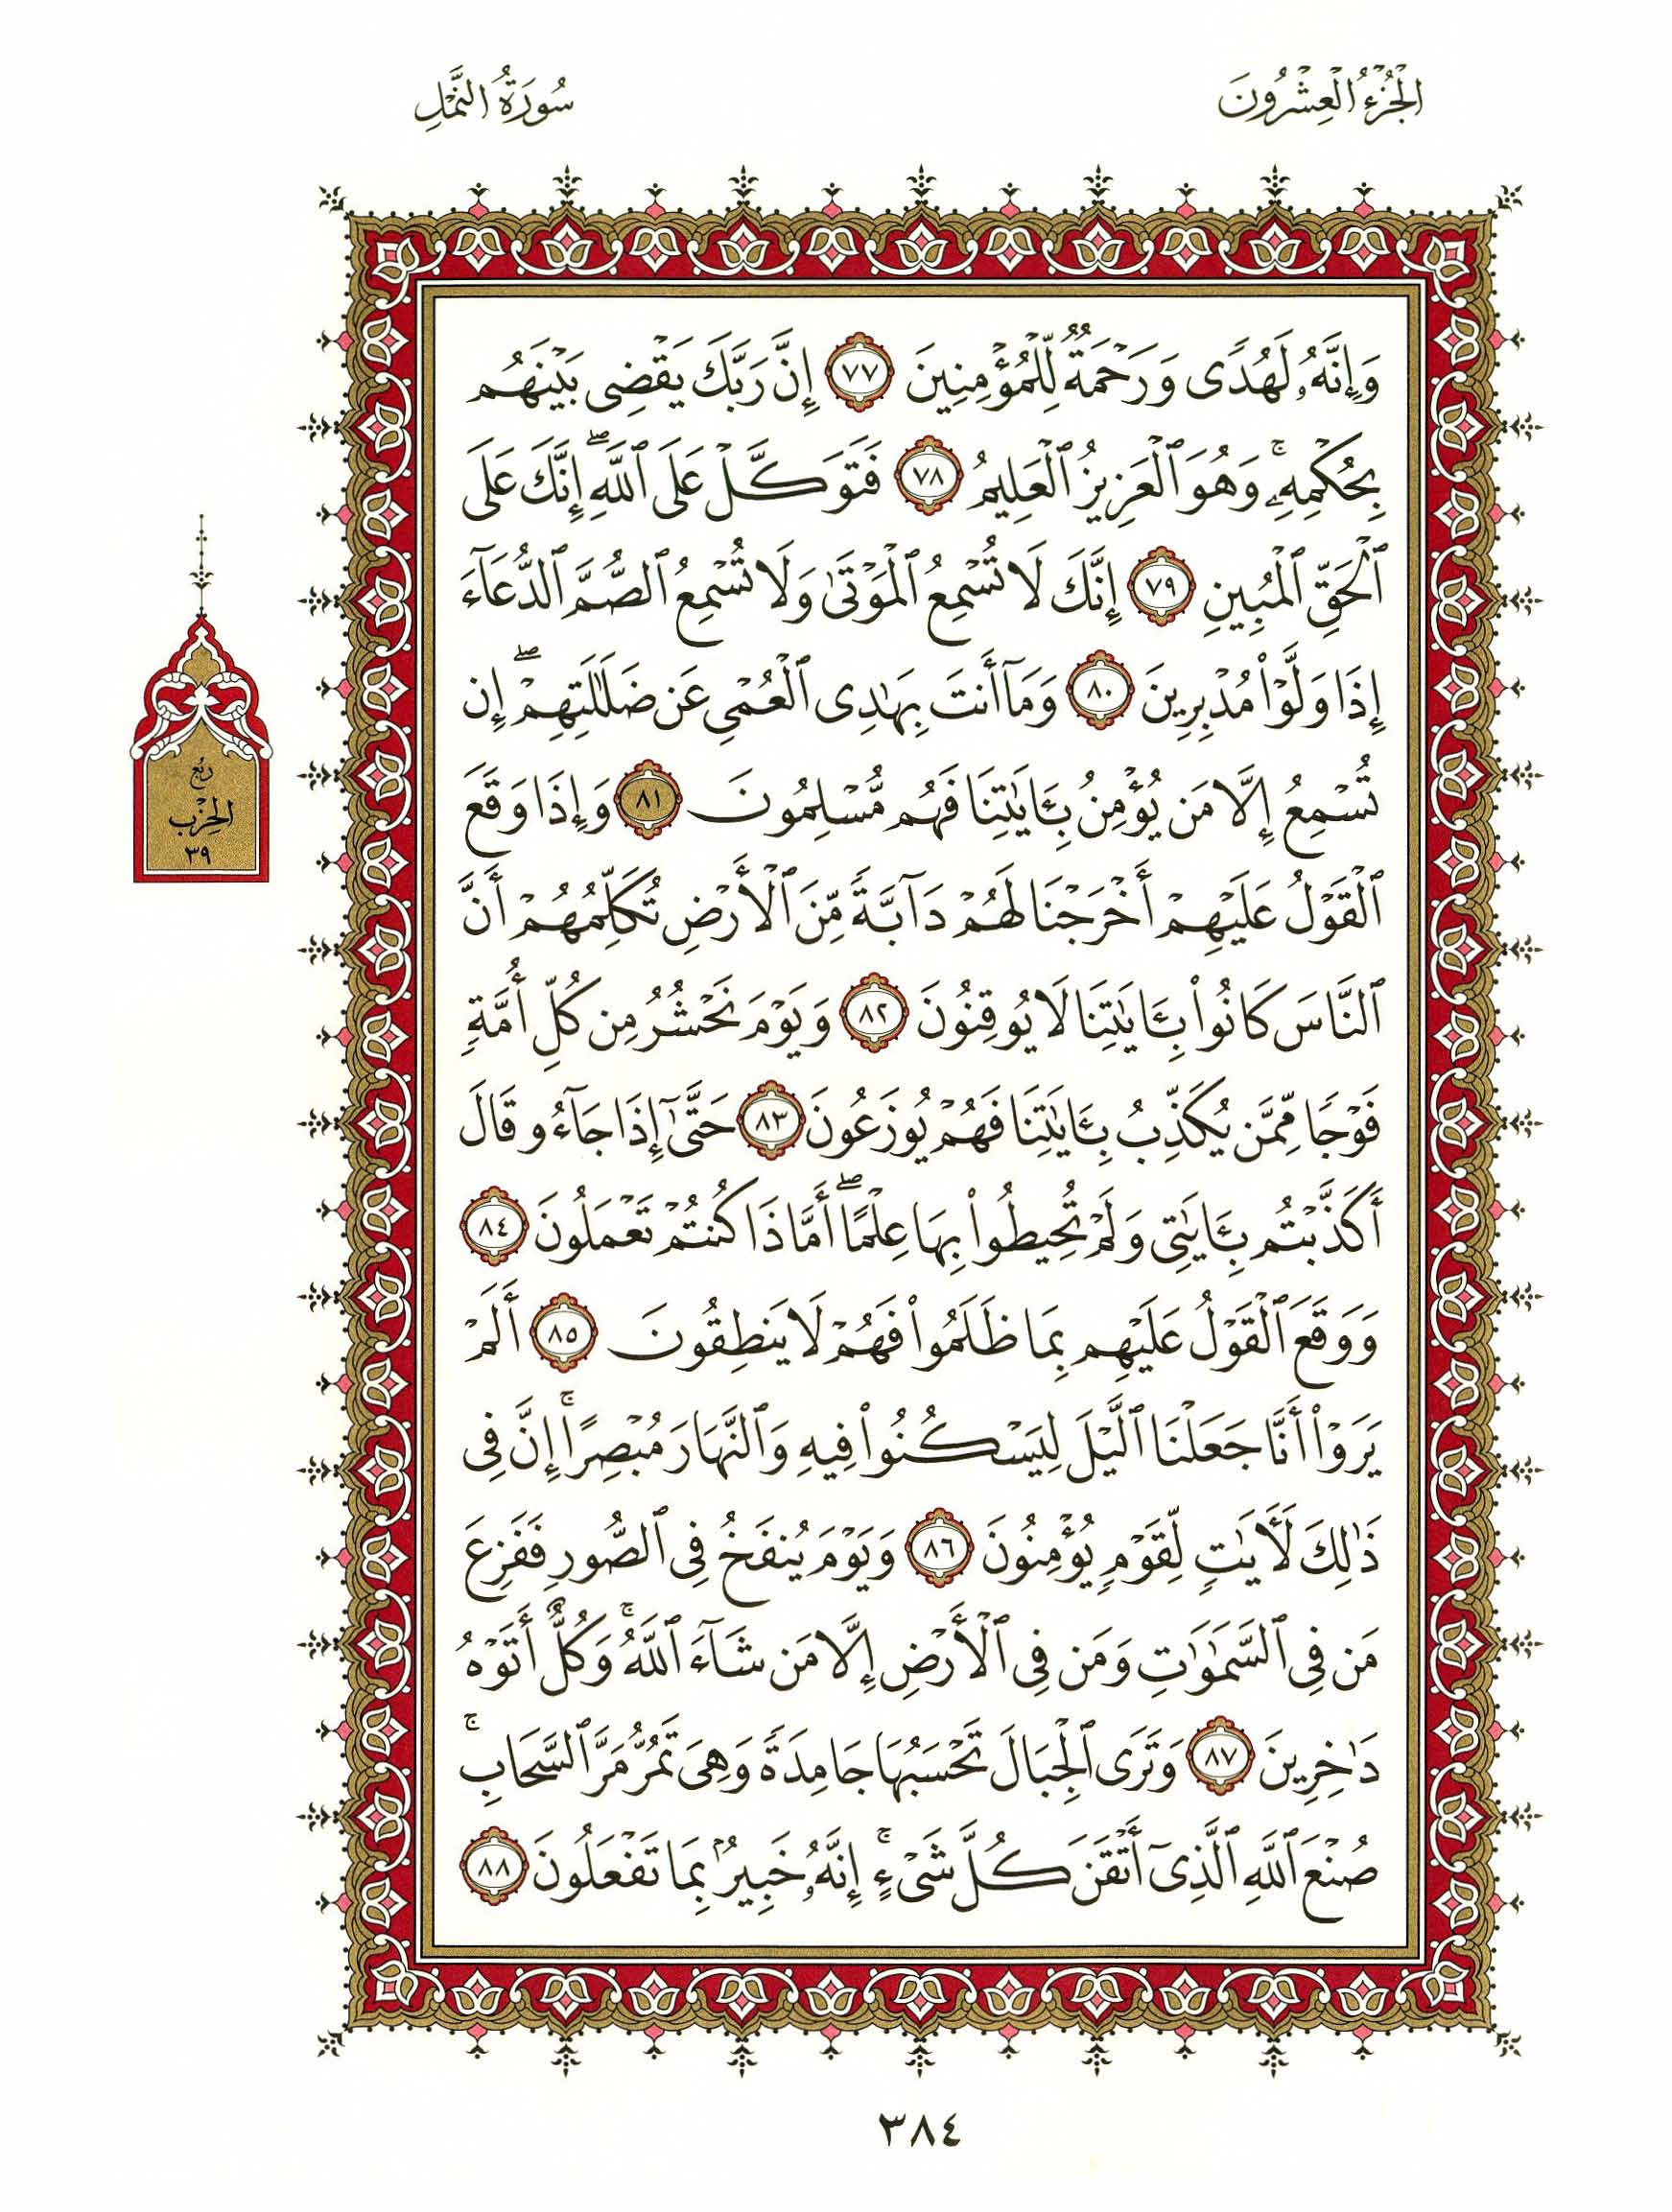 الْجُزْءُ الْعِشْرُونَ
سُورَةُ النَّمْلِ
وَإِنَّهُۥ لَهُدًى وَرَحْمَةٌ لِّلْمُؤْمِنِينَ ٧٧ إِنَّ رَبَّكَ يَقْضِى بَيْنَهُم
بِحُكْمِهِۦۚ وَهُوَ ٱلْعَزِيزُ ٱلْعَلِيمُ ٧٨ فَتَوَكَّلْ عَلَى ٱللَّهِۖ إِنَّكَ عَلَى
ٱلْحَقِّ ٱلْمُبِينِ ٧٩ إِنَّكَ لَا تُسْمِعُ ٱلْمَوْتَىٰ وَلَا تُسْمِعُ ٱلصُّمَّ ٱلدُّعَآءَ
إِذَا وَلَّوْا۟ مُدْبِرِينَ ٨٠ وَمَآ أَنتَ بِهَٰدِى ٱلْعُمْىِ عَن ضَلَٰلَتِهِمْۖ إِن
تُسْمِعُ إِلَّا مَن يُؤْمِنُ بِـَٔايَٰتِنَا فَهُم مُّسْلِمُونَ ٨١ وَإِذَا وَقَعَ
ٱلْقَوْلُ عَلَيْهِمْ أَخْرَجْنَا لَهُمْ دَآبَّةً مِّنَ ٱلْأَرْضِ تُكَلِّمُهُمْ أَنَّ
ٱلنَّاسَ كَانُوا۟ بِـَٔايَٰتِنَا لَا يُوقِنُونَ ٨٢ وَيَوْمَ نَحْشُرُ مِن كُلِّ أُمَّةٍ
فَوْجًا مِّمَّن يُكَذِّبُ بِـَٔايَٰتِنَا فَهُمْ يُوزَعُونَ ٨٣ حَتَّىٰٓ إِذَا جَآءُو قَالَ
أَكَذَّبْتُم بِـَٔايَٰتِى وَلَمْ تُحِيطُوا۟ بِهَا عِلْمًاۖ أَمَّاذَا كُنتُمْ تَعْمَلُونَ ٨٤
وَوَقَعَ ٱلْقَوْلُ عَلَيْهِم بِمَا ظَلَمُوا۟ فَهُمْ لَا يَنطِقُونَ ٨٥ أَلَمْ
يَرَوْا۟ أَنَّا جَعَلْنَا ٱلَّيْلَ لِيَسْكُنُوا۟ فِيهِ وَٱلنَّهَارَ مُبْصِرًاۚ إِنَّ فِى
ذَٰلِكَ لَـَٔايَٰتٍ لِّقَوْمٍ يُؤْمِنُونَ ٨٦ وَيَوْمَ يُنفَخُ فِى ٱلصُّورِ فَفَزِعَ
مَن فِى ٱلسَّمَٰوَٰتِ وَمَن فِى ٱلْأَرْضِ إِلَّا مَن شَآءَ ٱللَّهُۚ وَكُلٌّ أَتَوْهُ
دَٰخِرِينَ ٨٧ وَتَرَى ٱلْجِبَالَ تَحْسَبُهَا جَامِدَةً وَهِىَ تَمُرُّ مَرَّ ٱلسَّحَابِۚ
صُنْعَ ٱللَّهِ ٱلَّذِىٓ أَتْقَنَ كُلَّ شَىْءٍۚ إِنَّهُۥ خَبِيرٌۢ بِمَا تَفْعَلُونَ ٨٨
رُبْعُ
الْحِزْبِ
٣٩
٣٨٤